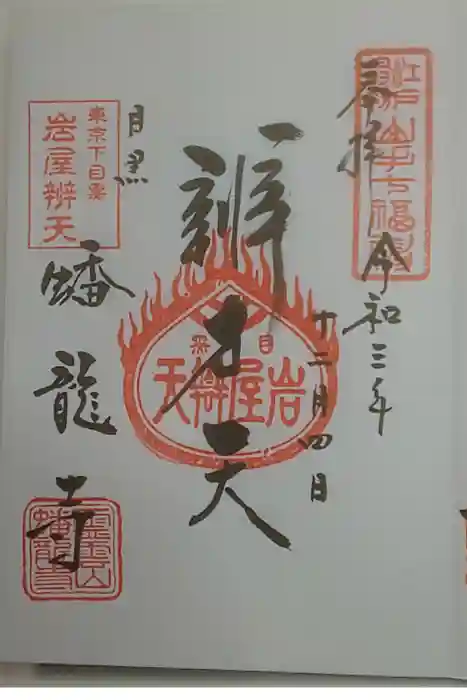 奉拝
江戸山手七福神
令和三年
十二月四日
辨才天
目黒
岩屋辨天
目黒
蟠龍寺
東京下目黒
岩屋辨天
霊雲山
蟠龍寺